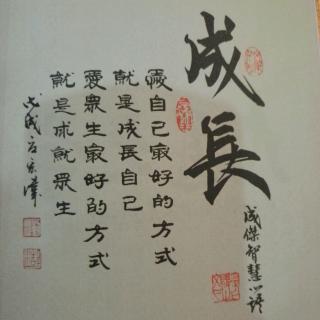 成長
成傑智慧心語
愛自己最好的方式
就是成長自己
愛眾生最好的方式
就是成就眾生
戊戌